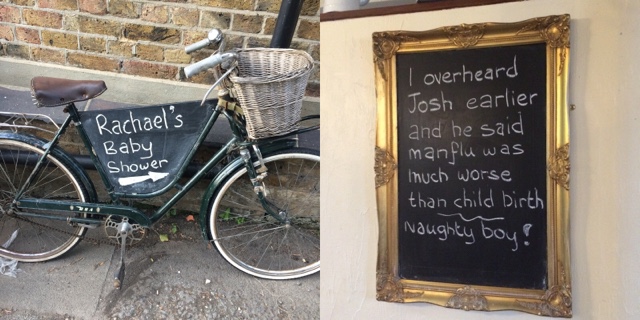 Rachael's
Baby
Shower
I overheard
Josh earlier
and he said
manflu was
much worse
than child birth
Naughty boy!